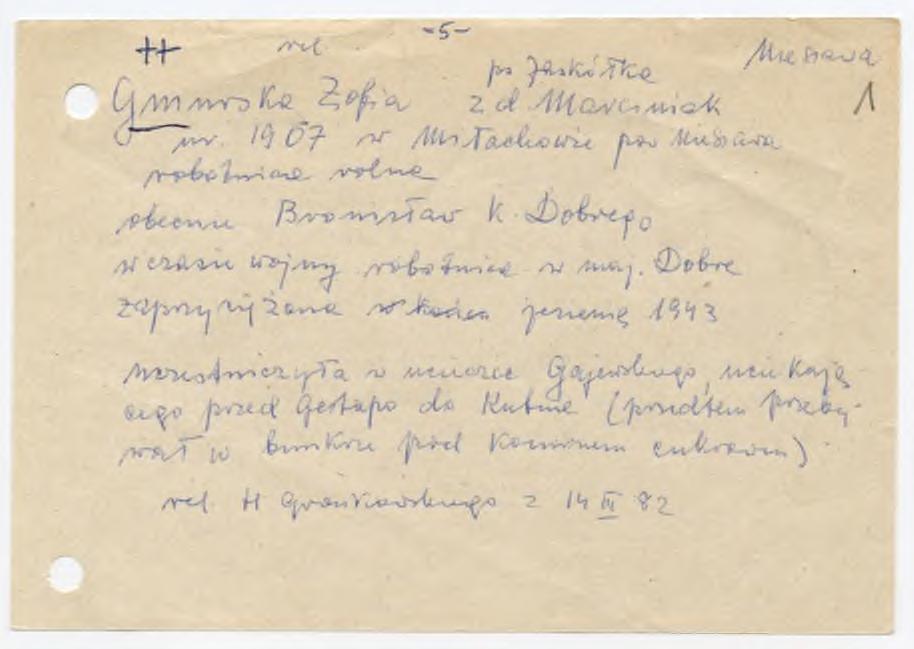 -5-
++ rel. Nieszawa
ps Jaskółka 1
Gminska Zofia z d Marciniak
ur. 1907 w Misłachowie pow Nieszawa
robotnica rolna
obecnie Bronisław k. Dobrego
w czasie wojny robotnica w maj. Dobre
zaprzysiężona w końcu jesienią 1943
uczestniczyła w ucieczce Gajewskiego, uciekają-
cego przed Gestapo do Kutna (przedtem przeby-
wał w bunkrze pod kominem cukrowni)
rel. H 2 14 III 82